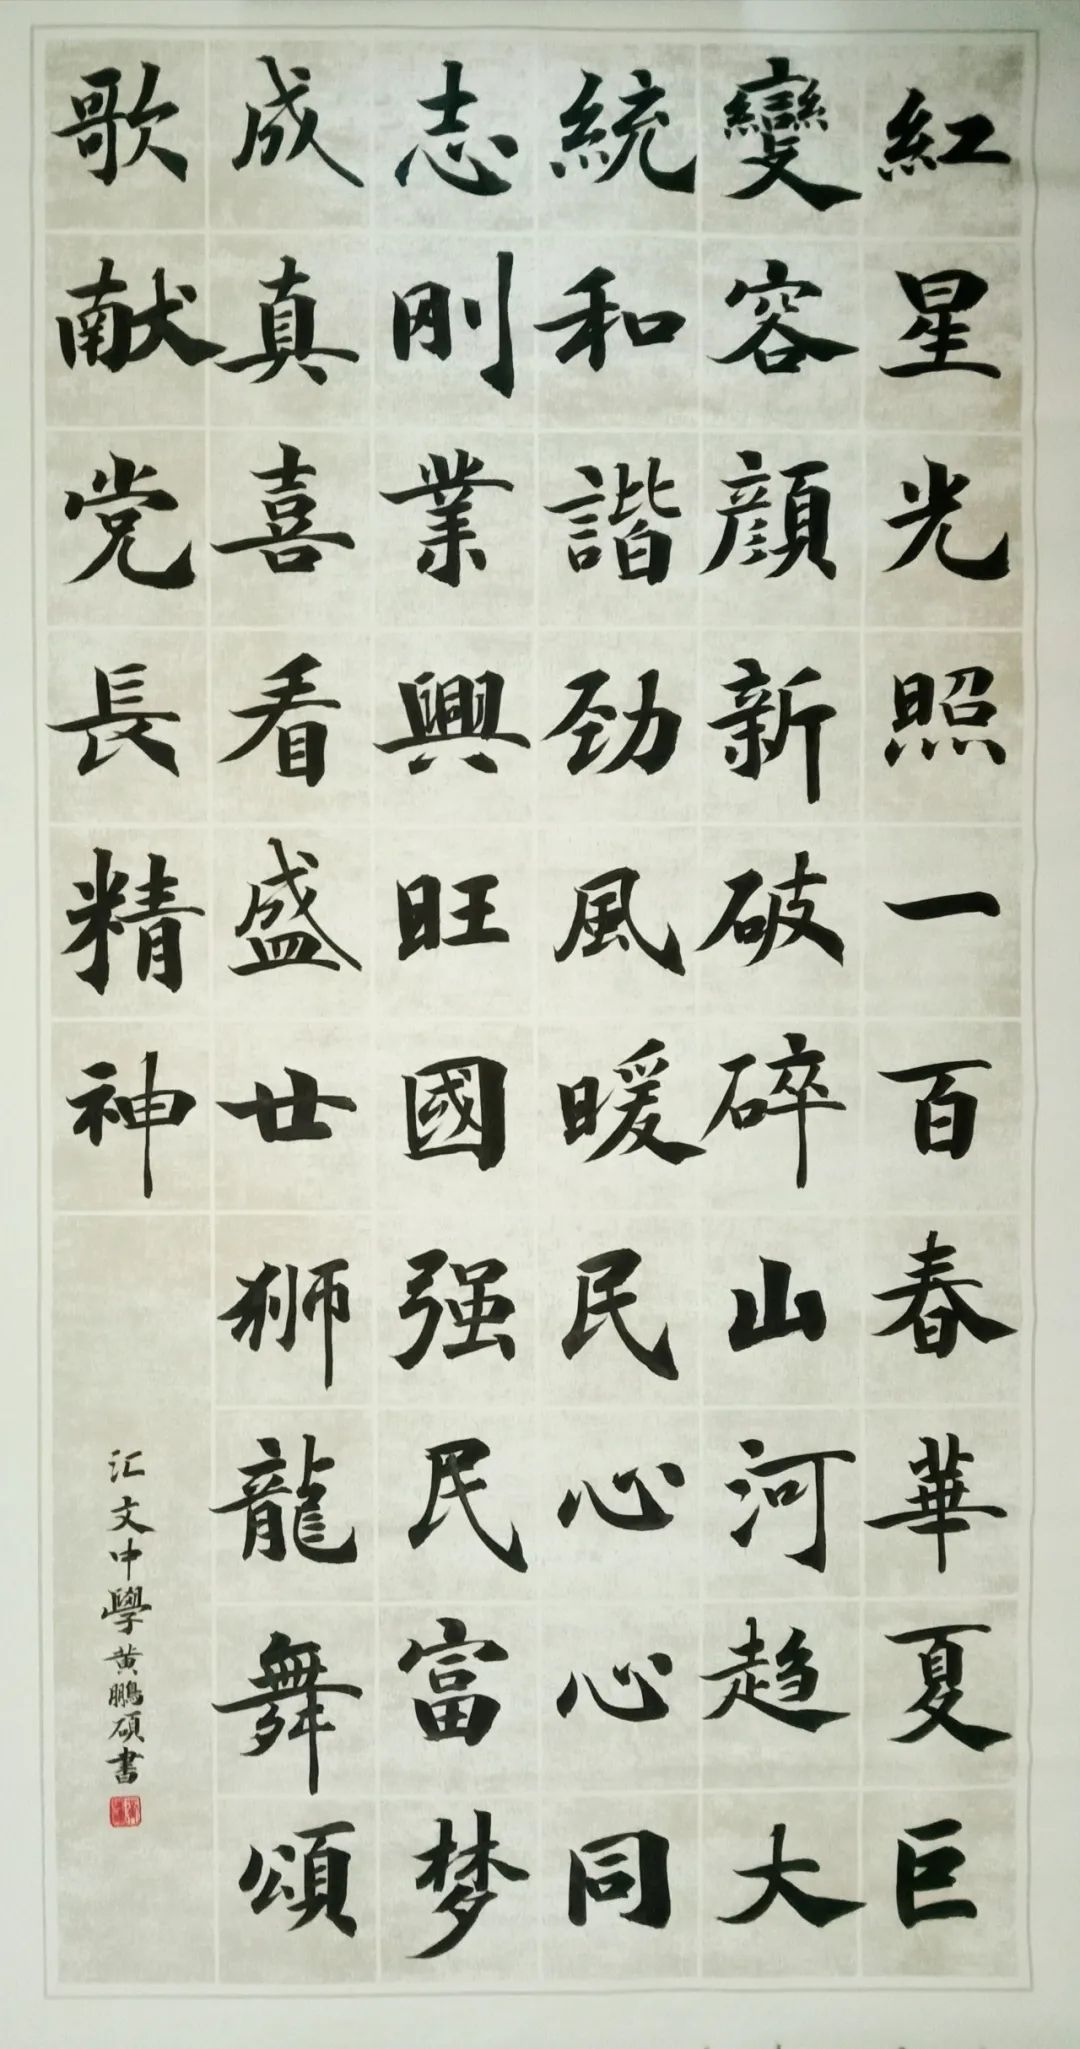 紅星光照一百春華夏巨
變容顔新破碎山河趋大
統和諧勁風暖民心心同
志刚業興旺國强民富梦
成真喜看盛世狮龍舞頌
歌献党長精神
汇文中學黄鵬碩書